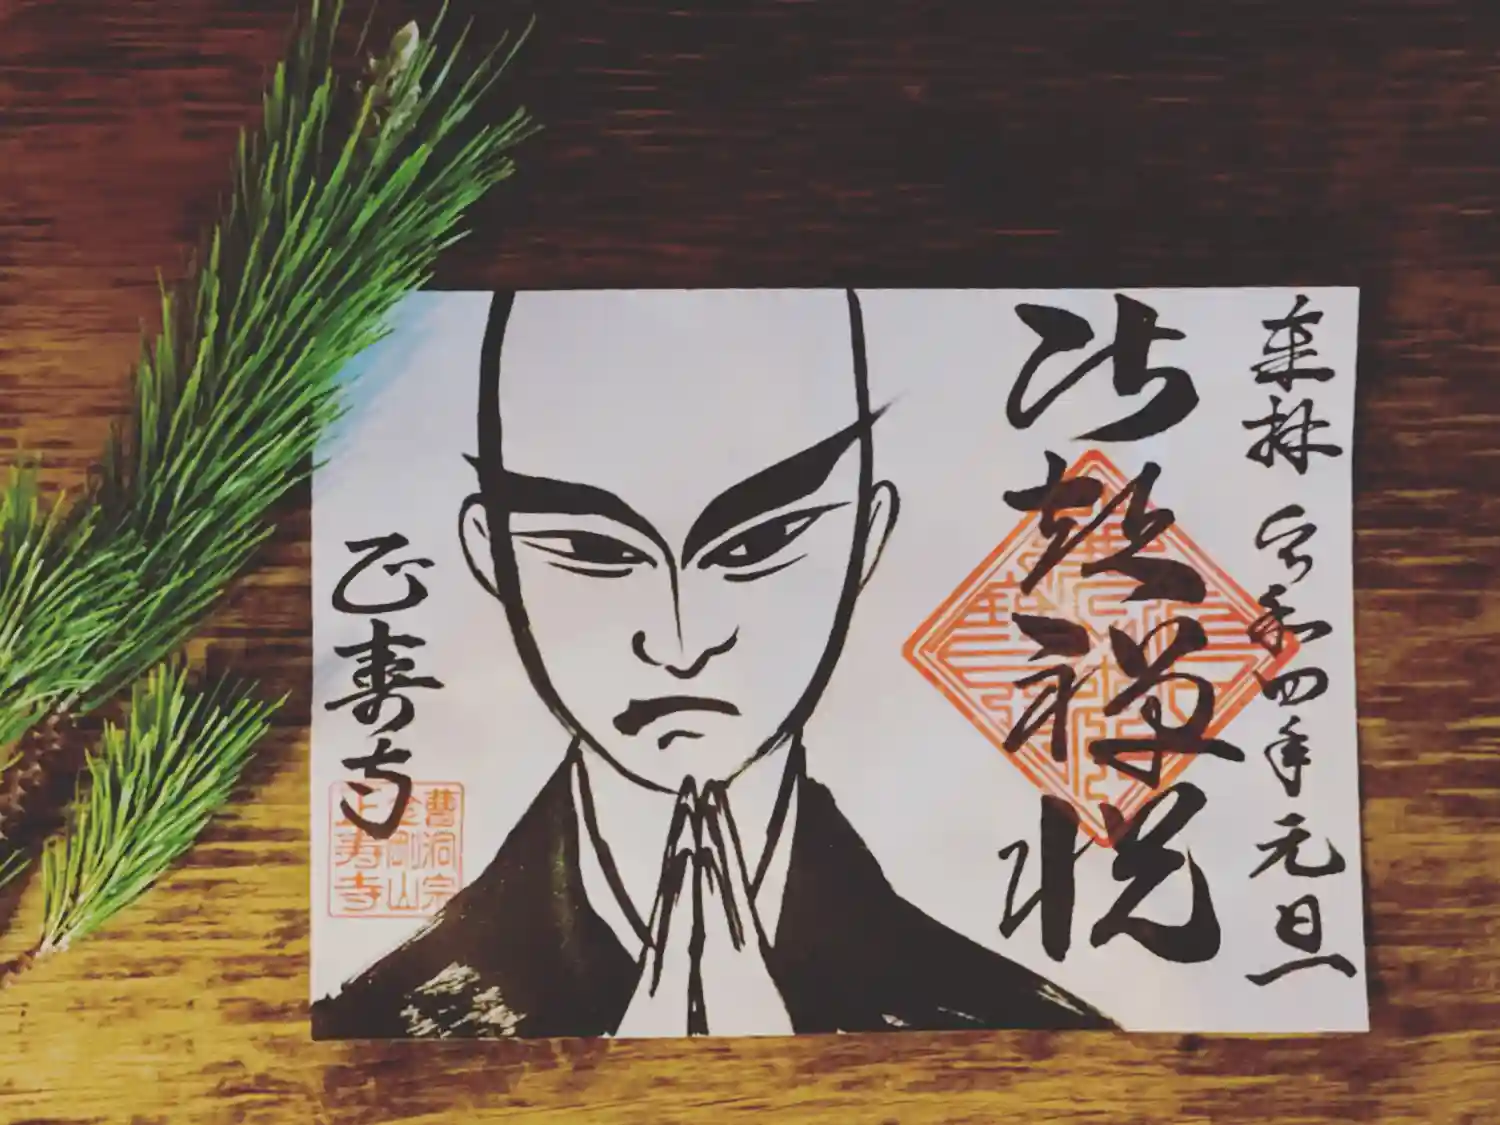 奉拝 令和四年元旦
法喜禅悦
正寿寺
曹洞宗
金剛山
正寿寺